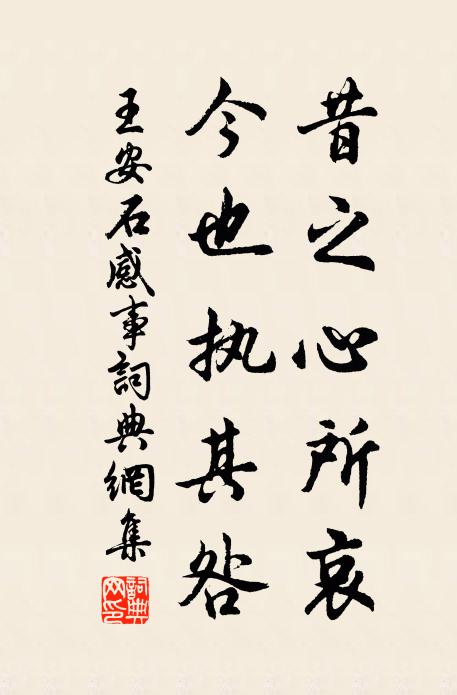 昔之心所哀
今也执其咎
王安石感事詞典網集
詞典网印